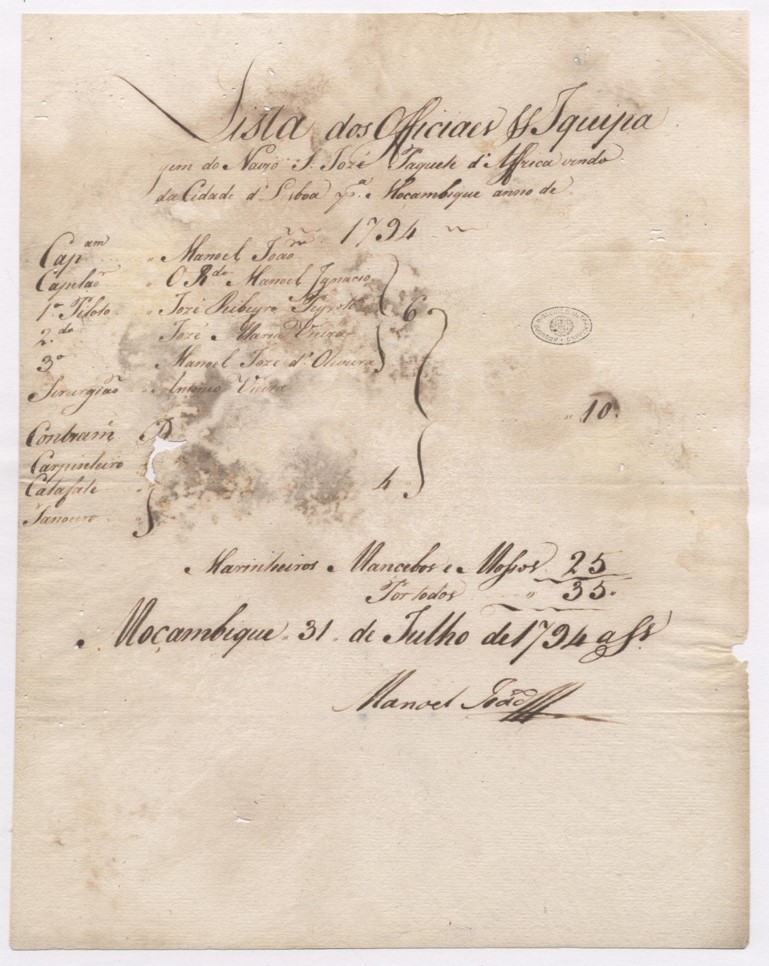 Lista dos Officiaes & Iquipa
gem do Navio S. José Paquete d'Affrica vindo
da Cidade d' Lisboa pª Mocambique anno de
1794
Capam " Manoel João
Capelão " O Rdo Manoel Ignacio
1º Piloto " José Ribeyro 6
2.do " José Maria
3º " Manoel José d' Oliveira
Sirurgião " Antonio Vieira
" 10.
Contram
Carpinteiro
Calafate 4
Tanoeiro
Marinheiros Mancebos e Mossos 25
Por todos " 35.
Moçambique 31 de Julho de 1794
Manoel João